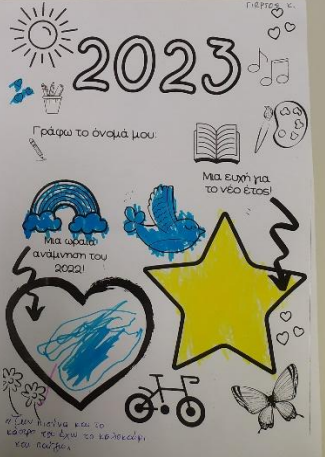 ΓΙΩΡΓΟΣ Κ.
2023
Γράφω το όνομά μου:
Μια ευχή για
το νέο έτος!
Μια ωραία
ανάμνηση του
2022!
πισίνα και το
κάστρο που έχω το καλοκαίρι
και παίζω.